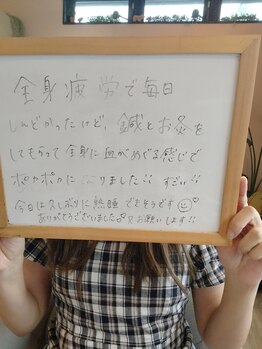 全身疲労で毎日
しんどかったけど、鍼とお灸を
してもらって全身に血がめぐる感じで
ポカポカになりました!! すごい!!
今日は久しぶりに熟睡できそうです
ありがとうございました 又お願いします!!